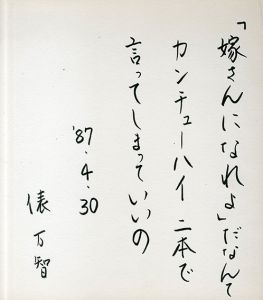 「嫁さんになれよ」だなんて
カンチューハイ二本で
言ってしまっていいの
'87.4.30
俵万智